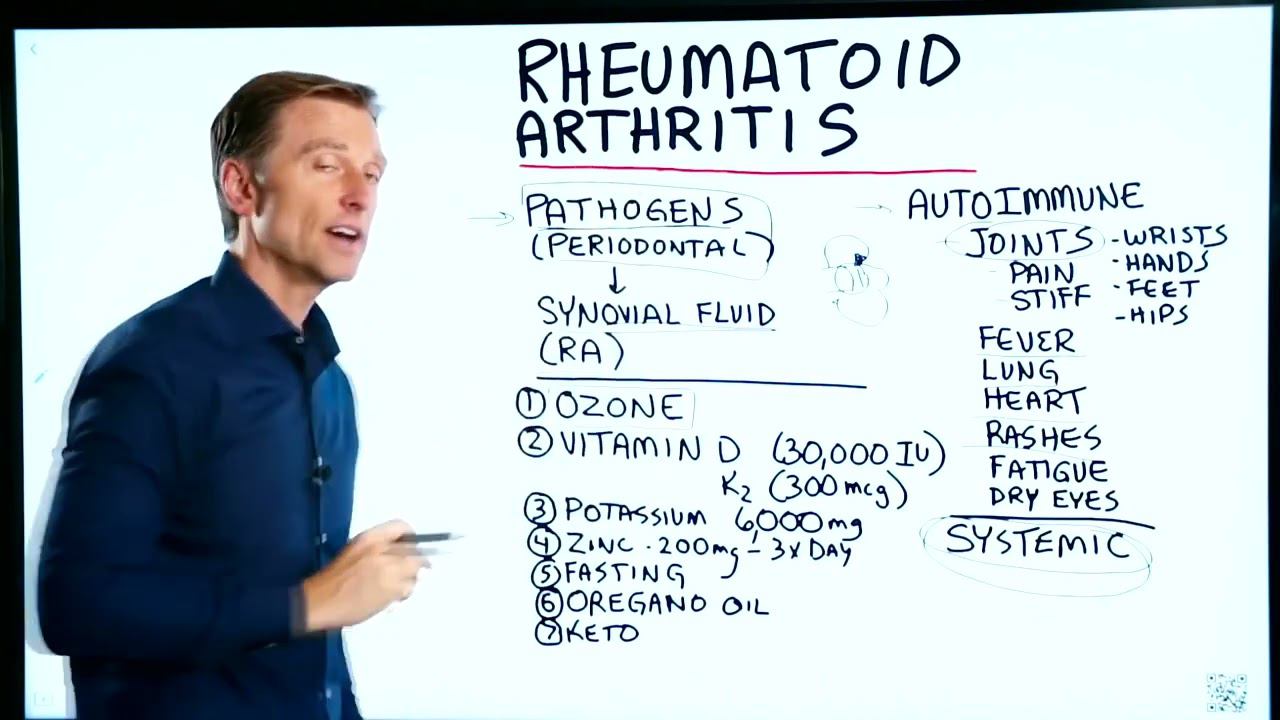 RHEUMATOID
ARTHRITIS
PATHOGENS
(PERIODONTAL)
↓
SYNOVIAL FLUID
(RA)
① OZONE
② VITAMIN D (30,000 IU)
K2 (300 mcg)
③ POTASSIUM 6,000mg
④ ZINC · 200mg - 3x DAY
⑤ FASTING
⑥ OREGANO OIL
⑦ KETO
→ AUTOIMMUNE
JOINTS - WRISTS
- HANDS
- PAIN
- FEET
STIFF
- HIPS
FEVER
LUNG
HEART
RASHES
FATIGUE
DRY EYES
SYSTEMIC